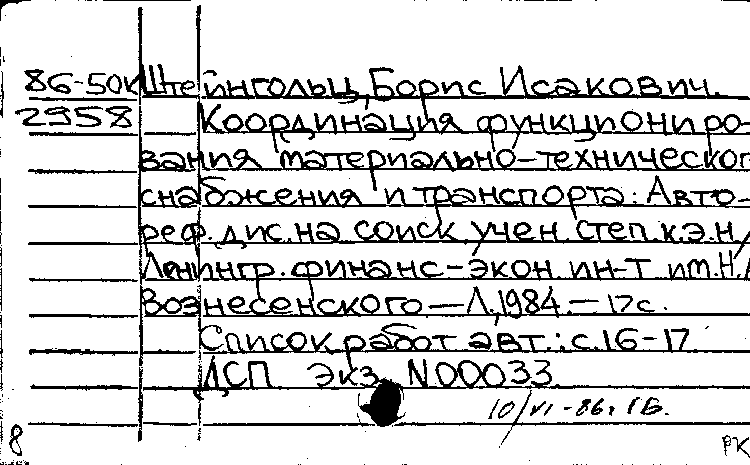 86-50К Штейнгольц, Борис Исакович.
2958 Координация функциониро-
вания материально-техническог
снабжения и транспорта: Авто-
реф. дис. на соиск. учен. степ. к.э.н/
Ленингр. финанс-экон. ин-т им. Н.А
Вознесенского — Л, 1984. — 17с.
Список работ авт.: с.16-17
ДСП Экз. N00033
10/VI-86г ГБ.
8 РК